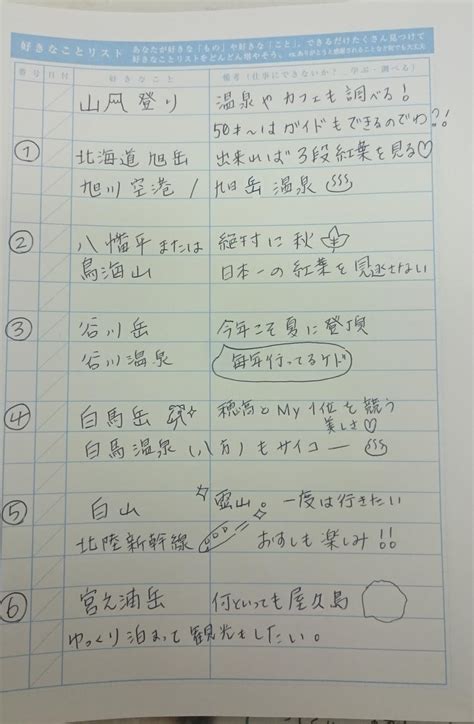 好きなことリスト あなたが好きな「もの」や好きな「こと」、できるだけたくさん見つけて
好きなことリストをどんどん増やそう。
番号 日付 好きなこと 備考(仕事にできないか? 学ぶ・調べる)
山登り 温泉やカフェも調べる!
50才〜はガイドもできるのでわ?!
① 北海道旭岳 出来れば3段紅葉を見る♡
旭川空港/旭岳温泉♨
② 八幡平または 絶対に秋
鳥海山 日本一の紅葉を見逃せない
③ 谷川岳 今年こそ夏に登頂
谷川温泉 毎年行ってるケド
④ 白馬岳 穂高とMy1位を競う
美しさ♡
白馬温泉(八方)もサイコー♨
⑤ 白山 霊山。一度は行きたい
北陸新幹線 おすしも楽しみ!!
⑥ 宮之浦岳 何といっても屋久島
ゆっくり泊まって観光もしたい。